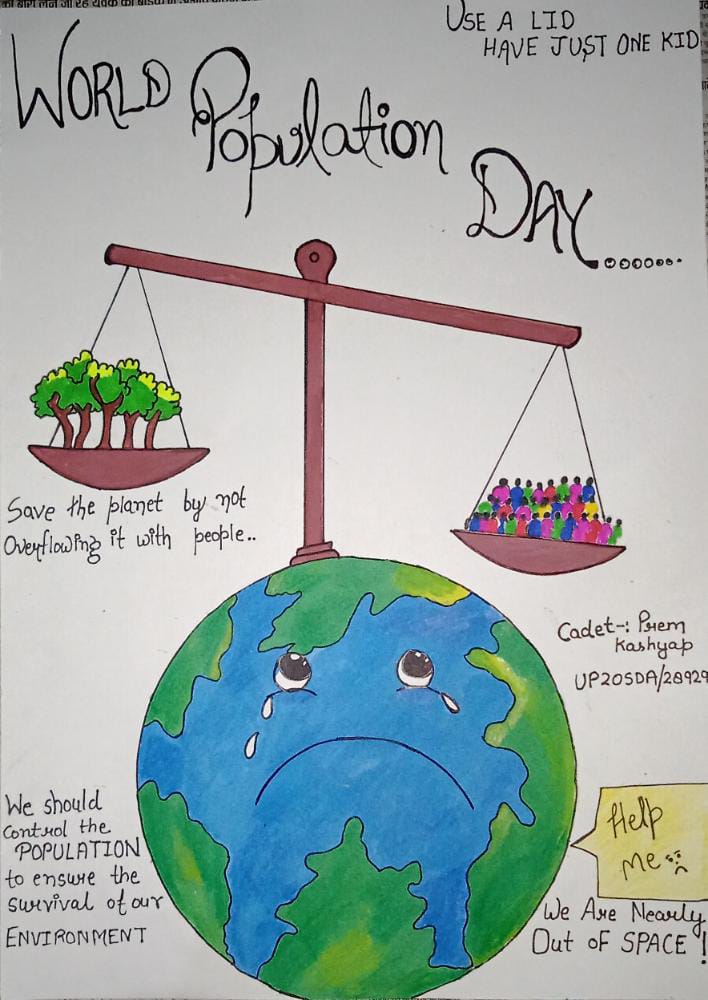 USE A LID
HAVE JUST ONE KID
WORLD
Population
DAY.......
Save the planet by not
Overflowing it with people..
Cadet-: Prem
Kashyap
UP20SDA/28929
We should
control the
POPULATION
to ensure the
survival of our
ENVIRONMENT
Help
Me
We Are Nearly
Out of SPACE !